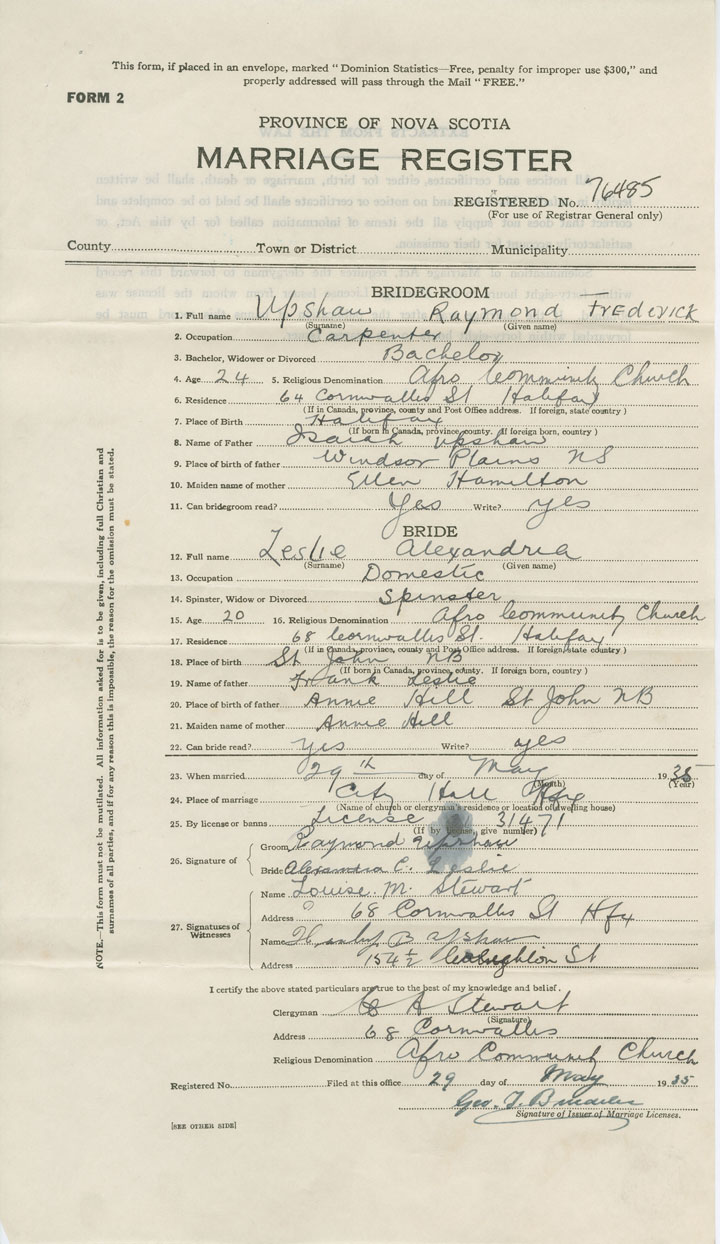 This form, if placed in an envelope, marked "Dominion Statistics—Free, penalty for improper use $300," and
properly addressed will pass through the Mail "FREE."
FORM 2
PROVINCE OF NOVA SCOTIA
MARRIAGE REGISTER
REGISTERED No. 76485
(For use of Registrar General only)
County Town or District Municipality
BRIDEGROOM
1. Full name Upshaw Raymond Frederick
(Surname) (Given name)
2. Occupation Carpenter
3. Bachelor, Widower or Divorced Bachelor
4. Age 24 5. Religious Denomination Afro Community Church
6. Residence 64 Cornwallis St Halifax
(If in Canada, province, county and Post Office address. If foreign, state country)
7. Place of Birth Halifax
(If born in Canada, province, county. If foreign born, country)
8. Name of Father Isaiah Upshaw
9. Place of birth of father Windsor Plains NS
10. Maiden name of mother Ellen Hamilton
11. Can bridegroom read? Yes Write? yes
BRIDE
12. Full name Leslie Alexandria
(Surname) (Given name)
13. Occupation Domestic
14. Spinster, Widow or Divorced Spinster
15. Age 20 16. Religious Denomination Afro Community Church
17. Residence 68 Cornwallis St. Halifax
(If in Canada, province, county and Post Office address. If foreign, state country)
18. Place of birth St John NB
(If born in Canada, province, county. If foreign born, country)
19. Name of father Frank Leslie
20. Place of birth of father Annie Hill St John NB
21. Maiden name of mother Annie Hill
22. Can bride read? yes Write? yes
23. When married 29th day of May 1935
(Month) (Year)
24. Place of marriage City Hall Hfx
(Name of church or clergyman's residence or location of dwelling house)
25. By license or banns License 31471
(If by license, give number)
26. Signature of
Groom Raymond Upshaw
Bride Alexandria C. Leslie
27. Signatures of Witnesses
Name Louise. M. Stewart
Address 68 Cornwallis St Hfx
Name B Upshaw
Address 154½ St
I certify the above stated particulars are true to the best of my knowledge and belief.
Clergyman A Stewart
(Signature)
Address 68 Cornwallis
Religious Denomination Afro Community Church
Registered No. Filed at this office 29 day of May 1935
Geo. T.
Signature of Issuer of Marriage Licenses.
[SEE OTHER SIDE]
NOTE.—This form must not be mutilated. All information asked for is to be given, including full Christian and
surnames of all parties, and if for any reason this is impossible, the reason for the omission must be stated.